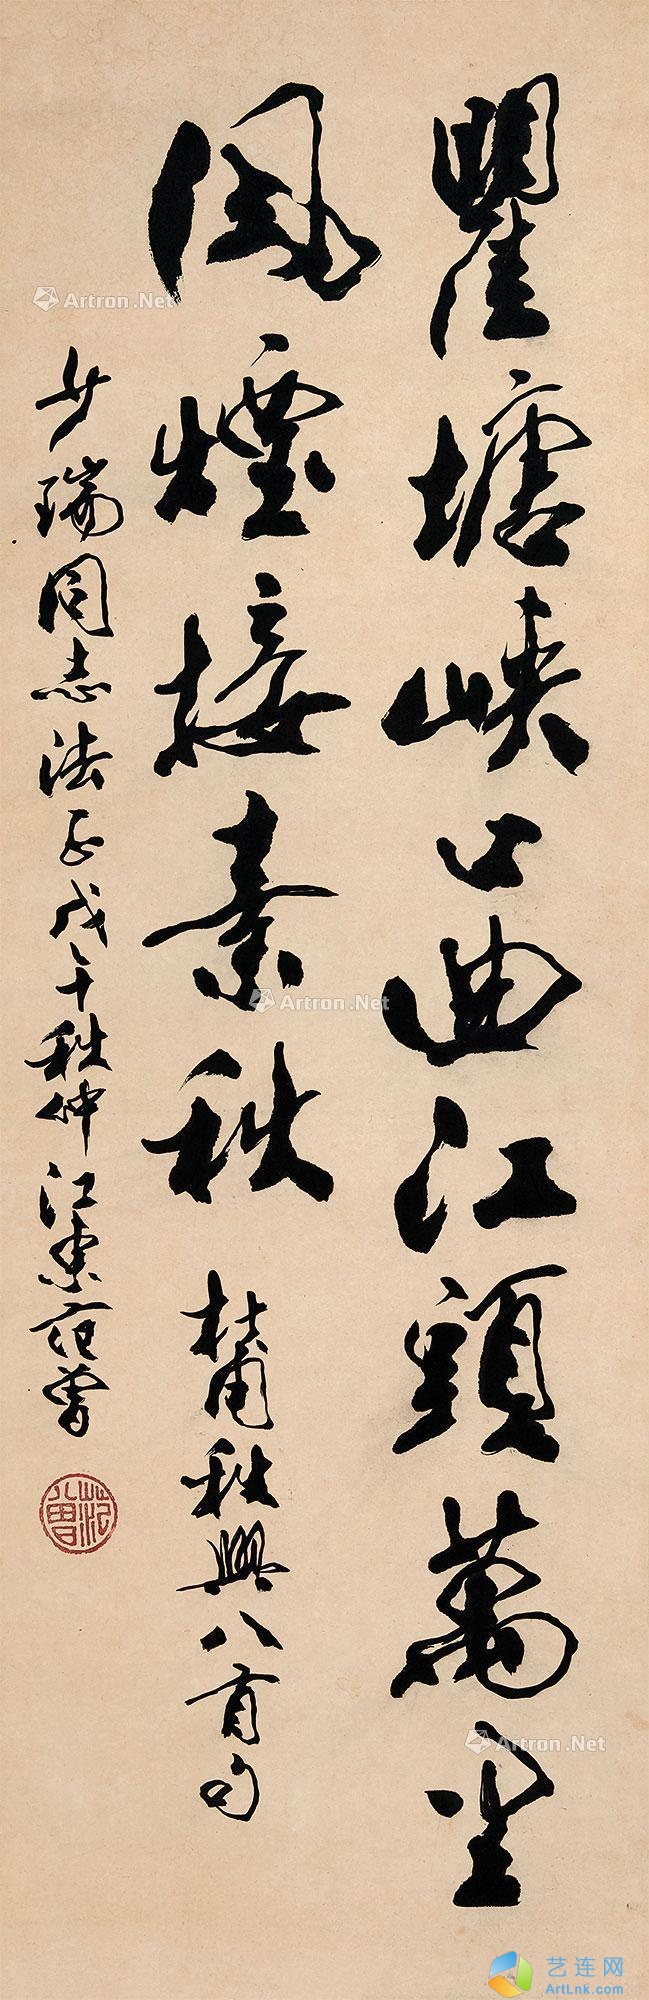 瞿塘峽口曲江頭萬里
風煙接素秋 杜甫秋興八首句
步瑞同志法正戊午秋仲江東范曾
范曾
Artron.Net
Artron.Net
Artron.Net
艺连网
ArtLnk.com